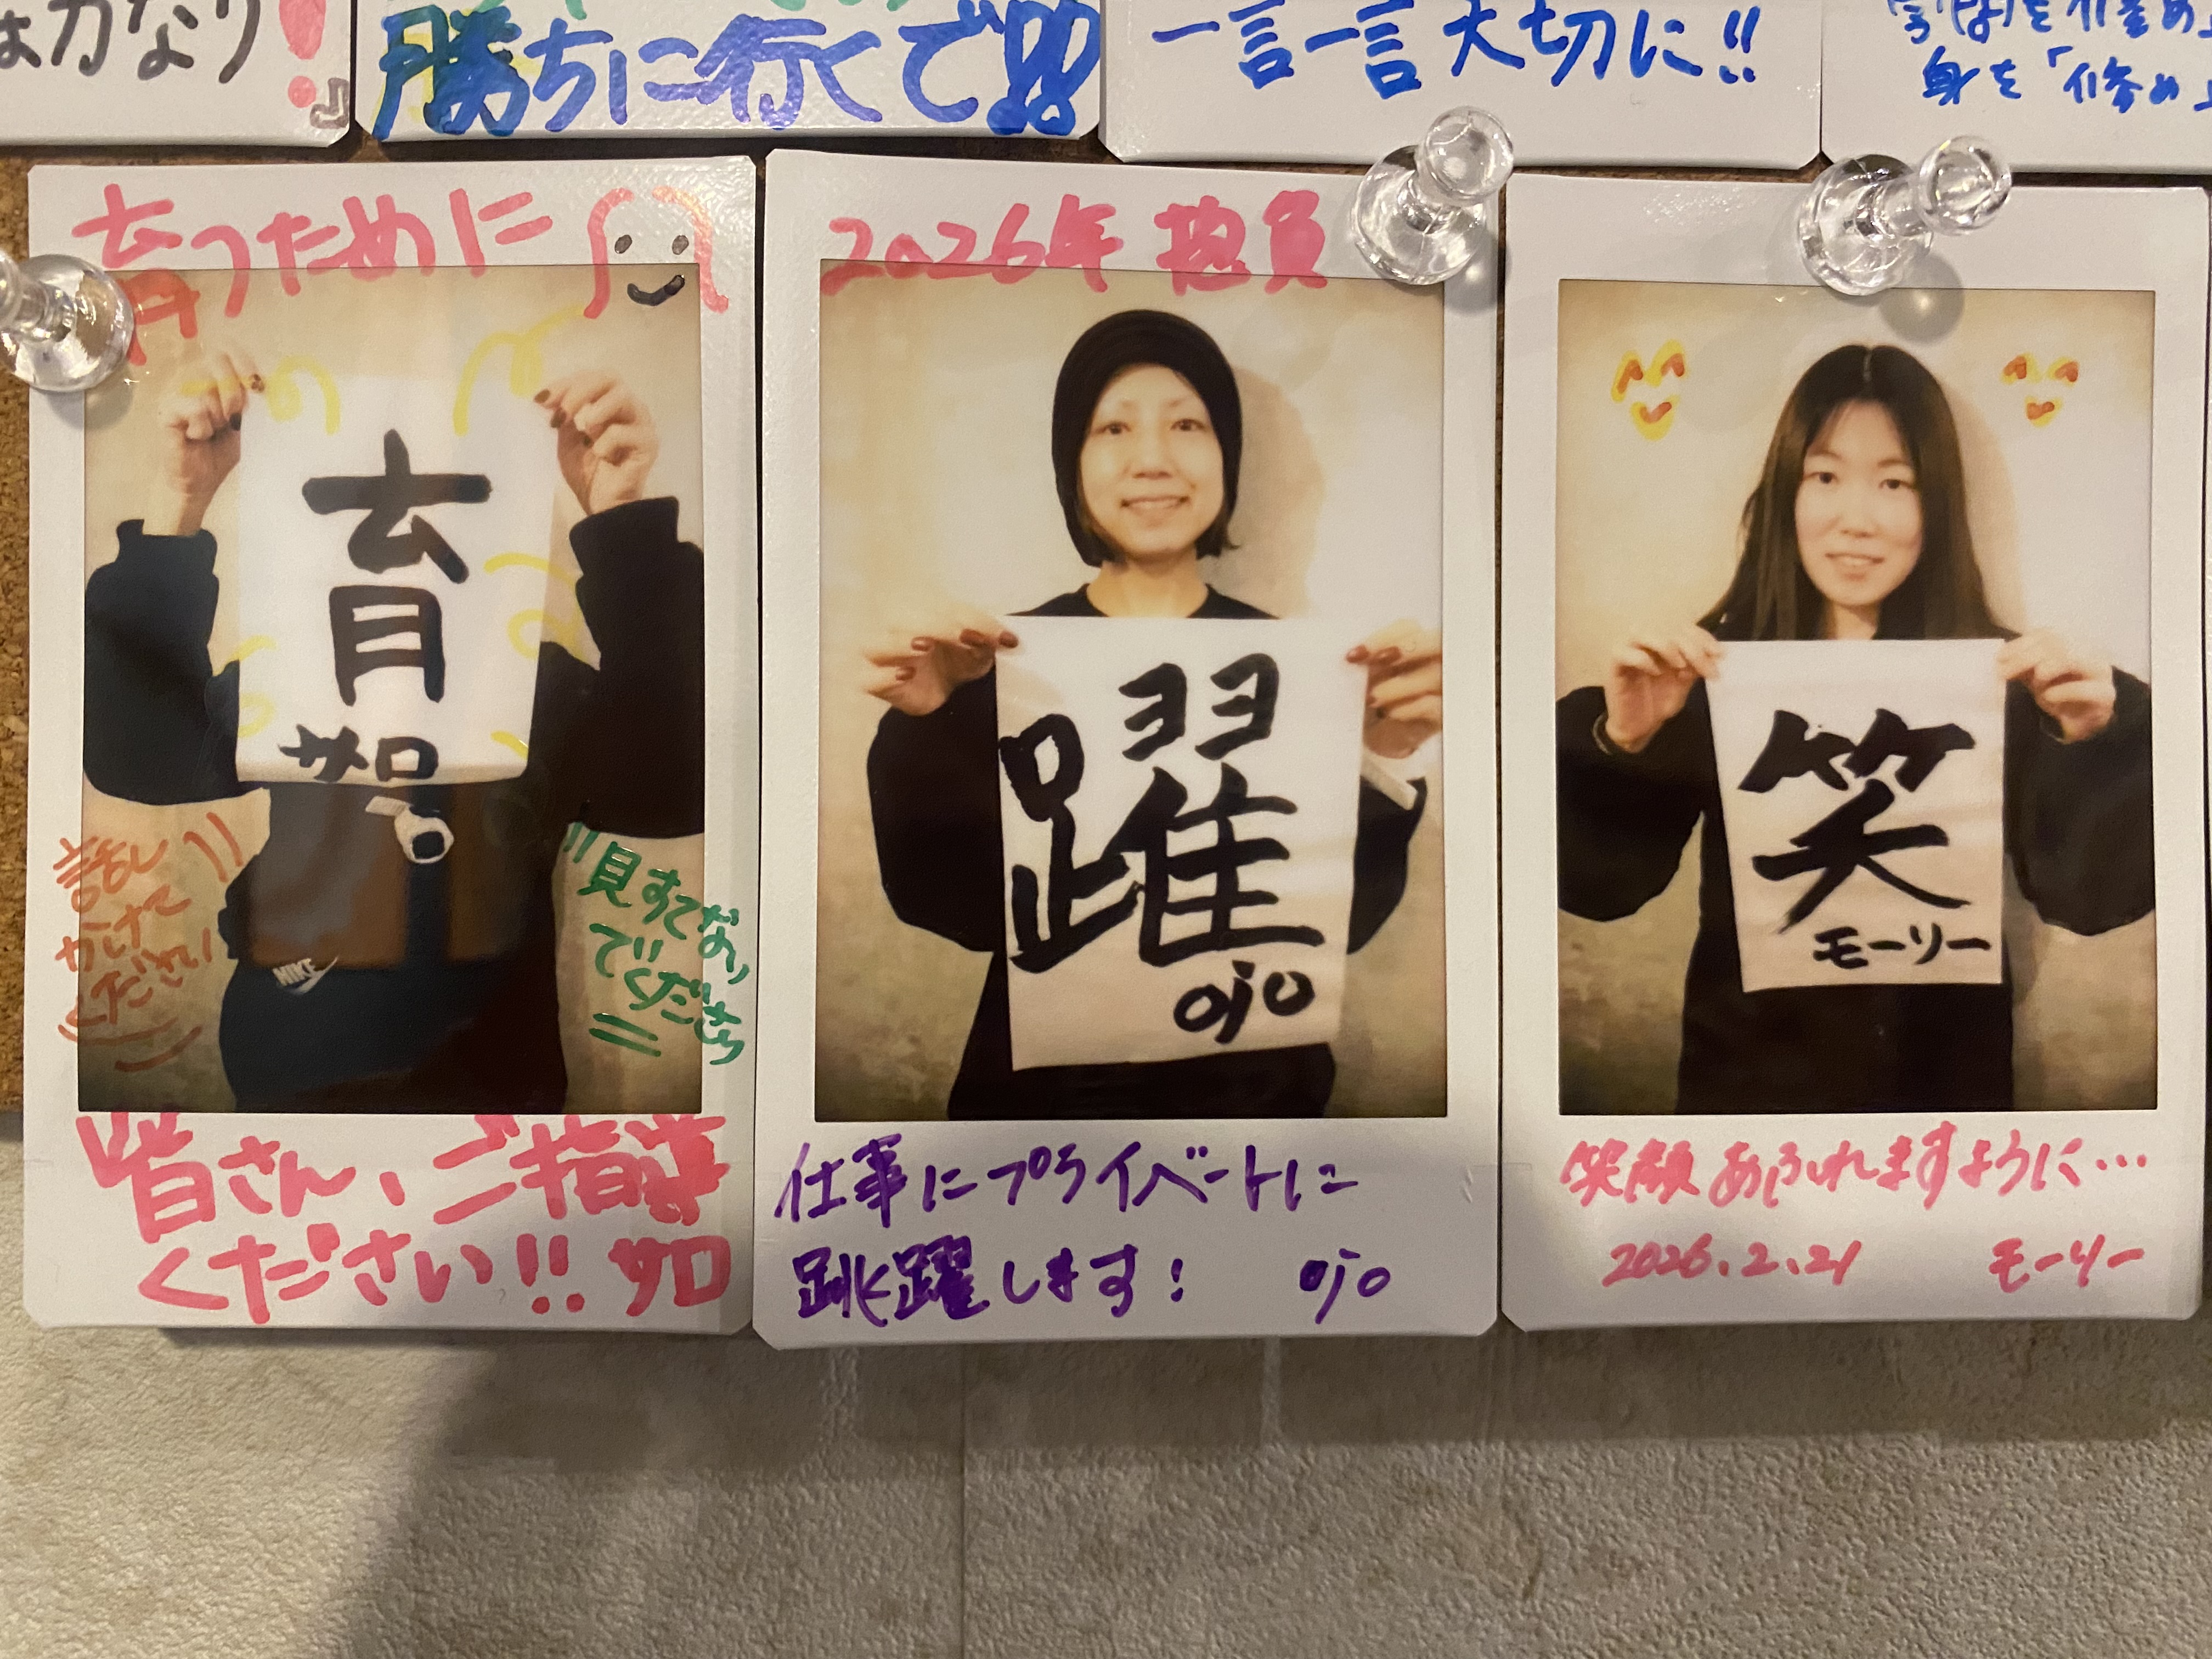 は力なり!
勝ちに行くで!!
一言一言大切に!!
身を「修め」
育つために
育
サロ
話し
かけて
ください
見すてない
でください
NIKE
皆さん、ご指導
ください!! サロ
2026年 抱負
躍
ojo
仕事にプライベートに
跳躍します! ojo
笑
モーリー
笑顔あふれますように…
2026.2.21 モーリー